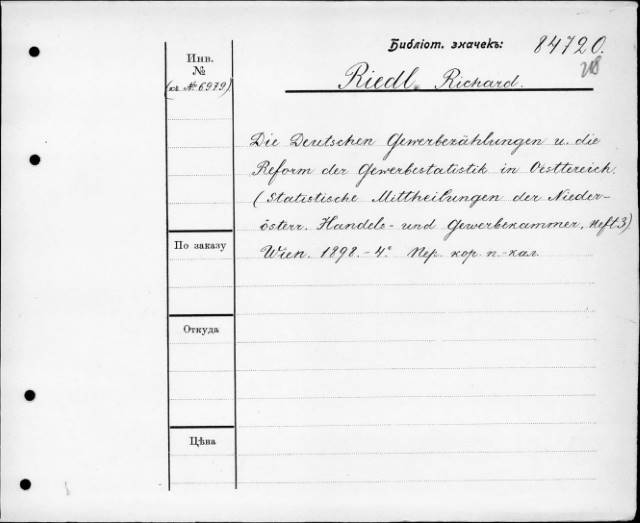 Библіот. значекъ: 84720.
Инв.
№
(къ № 6979)
Riedl, Richard.
Die Deutschen Gewerbezählungen u. die
Reform der Gewerbestatistik in Oesttereich.
(Statistische Mittheilungen der Nieder-
österr. Handels- und Gewerbekammer, Heft 3)
Wien. 1898. - 4°. Пер. кор. п.-кал.
По заказу
Откуда
Цѣна